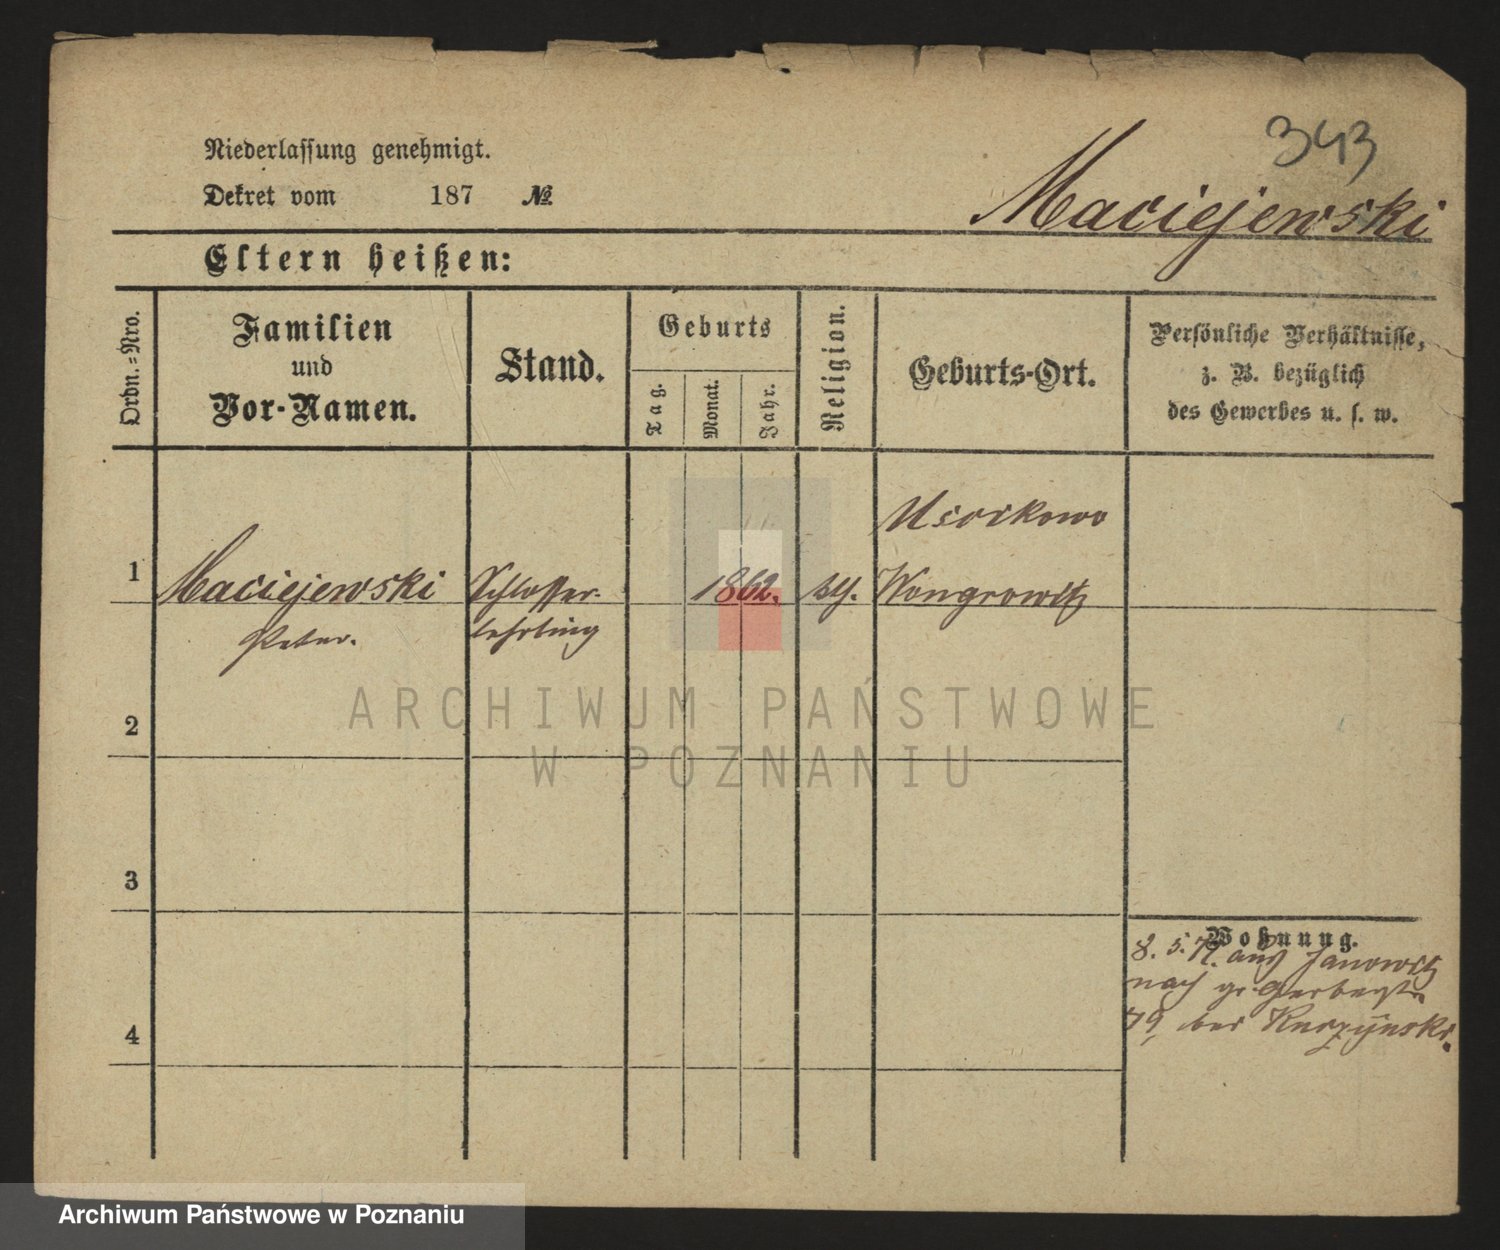 343
Niederlassung genehmigt.
Dekret vom 187 №
Maciejewski
Eltern heißen:
Ordn.-Nro.
Familien
und
Vor-Namen.
Stand.
Geburts
Tag.
Monat.
Jahr.
Religion.
Geburts-Ort.
Persönliche Verhältnisse,
z. B. bezüglich
des Gewerbes u. s. w.
Uscikowo
1 Maciejewski Schlosser- 1862. kth. Wongrowitz
Peter. lehrling
ARCHIWUM PAŃSTWOWE
W POZNANIU
2
3
4
Wohnung.
8. 5. 79. aus Janowitz
nach gr. Gerberstr.
bei
Archiwum Państwowe w Poznaniu